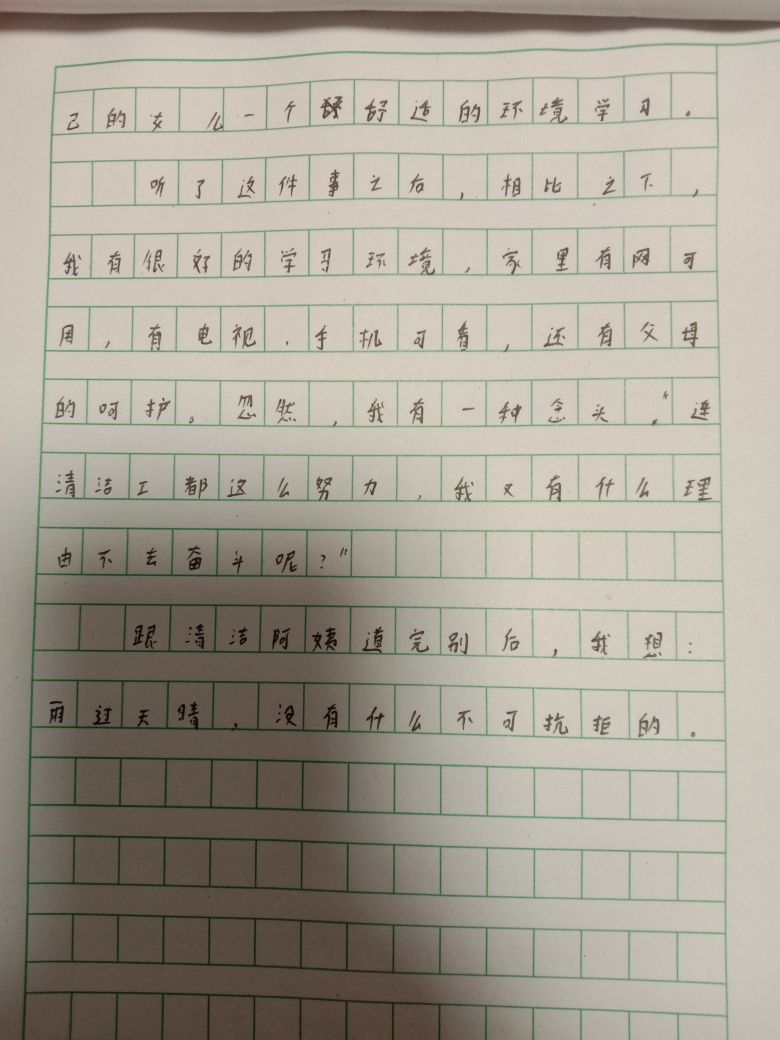 己的女么一个舒适的环境学习。
听了这件事之后，相比之下，
我有很好的学习环境，家里有网可
用，有电视.手机可看，还有父母
的呵护。忽然，我有一种念头，“连
清洁工都这么努力，我又有什么理
由不去奋斗呢？”
跟清洁阿姨道完别后，我想：
雨过天晴，没有什么不可抗拒的。